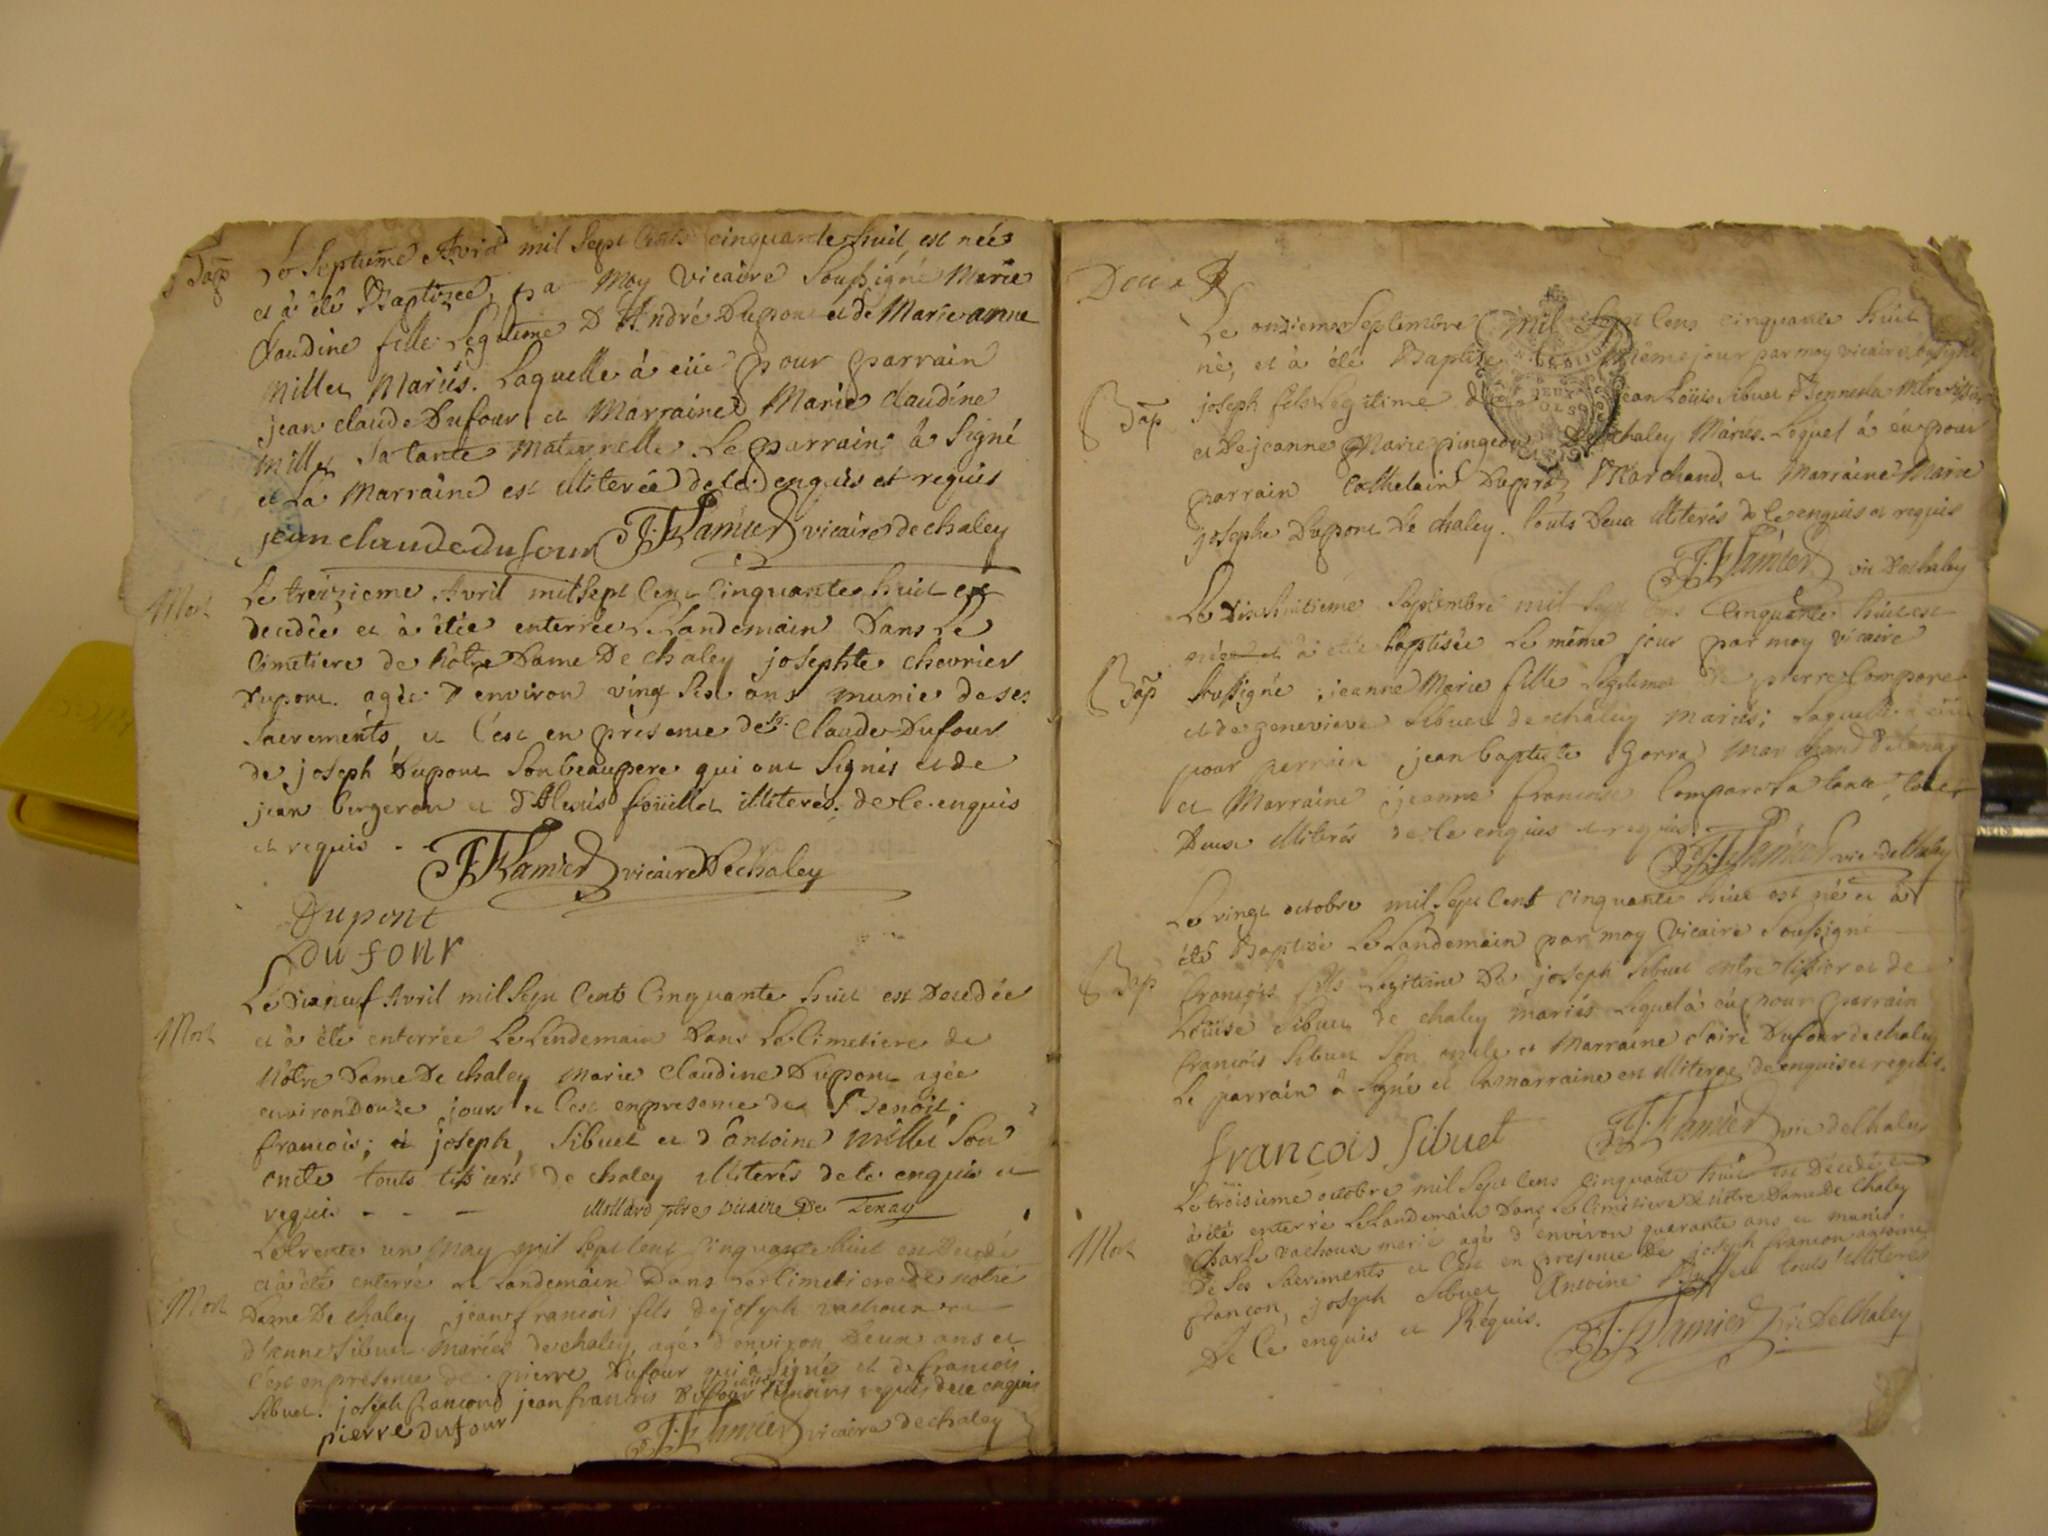 Bap
Le Septieme Avril mil Sept Cents cinquante huit est née
et à été Baptizée, par Moy Vicaire Soussigné Marie
Claudine fille Legitime D'André Dupont et de Marie anne
Millet Mariés. Laquelle à eüe pour parrain
jean claude Dufour et Marraine Marie claudine
Millet Sa tante Maternelle. Le parrain à Signé
et La Marraine est illiterée de ce enquis et requis
jean claude dufour J: F: Lamier vicaire de chaley
Mort
Le treizieme Avril mil Sept Cent Cinquante huit est
decedée et à étée enterrée Le Landemain Dans Le
Cimetiere de Nôtre Dame De chaley josephte chevrier
Dupont. agée d'environ vingt Six ans munie de ses
Sacrements, et C'est en présence de Sr. Claude Dufour
de joseph Dupont Son beaupere qui ont Signés et de
jean bergeron et d'Alexis foüillet illiterés: de ce enquis
et requis - -
J: F: Lamier vicaire De chaley
Dupont
Dufour
Mort
Le Dixneuf Avril mil Sept Cents Cinquante huit est Decedée
et à été enterrée Le Lendemain Dans Le Cimetiere de
Nôtre Dame De chaley Marie Claudine Dupont agée
environ Douze jours et C'est en presence de Benoit;
francois; et joseph, Sibuet et d'antoine Millet Son
oncle touts tissiers de chaley illiterés de ce enquis et
requis - - - Millard ptre vicaire De Tenay
Mort
Le trente un May mil Sept Cent Cinquante huit est Decedé
et à été enterré Le Landemain Dans Le Cimetiere de nôtre
Dame De chaley jean francois fils de joseph vachoux et
d'Anne Sibuet Mariés de chaley, agé d'environ Deux ans et
C'est en présence de pierre Dufour qui à Signé et de francois
Sibuet. joseph francon jean francois Dufour temoins requis de ce enquis
pierre dufour J: F: Lamier vicaire de chaley
Deux
Bap
Le onzieme Septembre mil Sept Cens Cinquante huit
né, et à été Baptisé même jour par moy vicaire Soussigné
joseph fils Legitime de jean Loüis Sibuet
et De jeanne Marie pingeon de chaley Mariés. Lequel à eu pour
parrain Cathelain Dupraz Marchand, et Marraine Marie
josephe Dupont De chaley. touts Deux illiterés de ce enquis et requis
J: F: Lamier vic De chaley
Bap
Le Dixhuitieme Septembre mil Sept Cens Cinquante huit est
née et à été baptisée Le même jour par moy vicaire
Soussigné jeanne Marie fille Legitime de pierre Compare
et de genevieve Sibuet de chaley Mariés; Laquelle à eüe
pour perrain jean baptiste Gorra Marchand De Tenay
et Marraine jeanne francoise Compare Sa tante, touts
Deux illiterés de ce enquis et requis
J: F: Lamier vic. de chaley
Bap
Le vingt octobre mil Sept Cent Cinquante huit est né et à
été Baptisé Le Landemain par moy Vicaire Soussigné
francois fils Legitime De joseph Sibuet mtre tissier et de
Loüise Sibuet de chaley mariés Lequel à eu pour parrain
francois Sibuet Son oncle et Marraine claire Dufour de chaley
Le parrain à Signé et La marraine est illiterée de ce enquis et requis.
françois Sibuet J: F: Lamier vic de chaley
Mort
Le troisieme octobre mil Sept Cens Cinquante huit est Décédé et
à été enterré Le Landemain Dans Le Cimetiere de nôtre Dame De chaley
Charle vachoux marié agé d'environ quarante ans et munis
De Ses Sacrements et C'est en presence De joseph francon antoine
francon, joseph Sibuet Antoine touts illiterés
De Ce enquis et Réquis. J: F: Lamier vic De Chaley